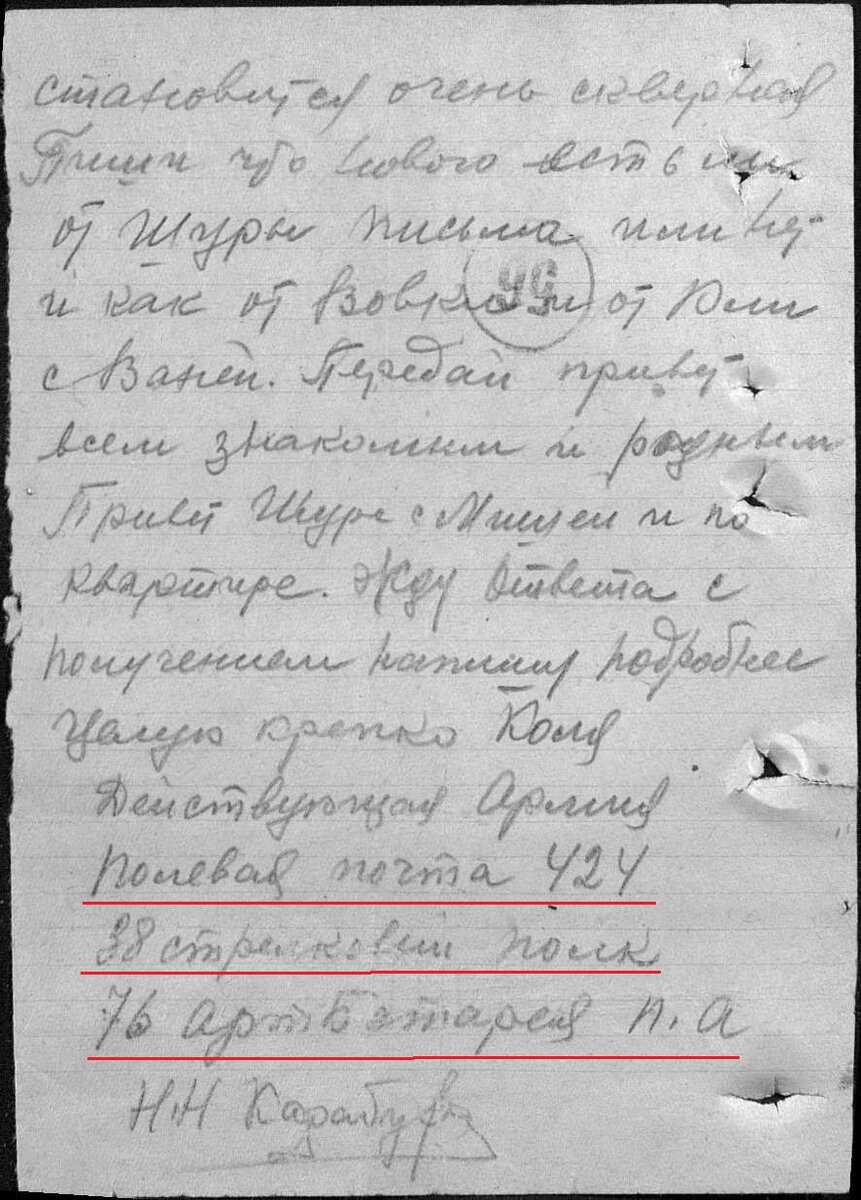 становится очень скверная
Пиши что нового есть ли
от Шуры письма или нет
и как от Вовки и от Оли
с Ваней. Передай привет
всем знакомым и родным
Привет Шуре с Мишей и по
квартире. Жду ответа с
получением напишу подробнее
Целую крепко Коля
Действующая Армия
Полевая почта 424
38 стрелковый полк
76 артбатарея П.А
Н.Н